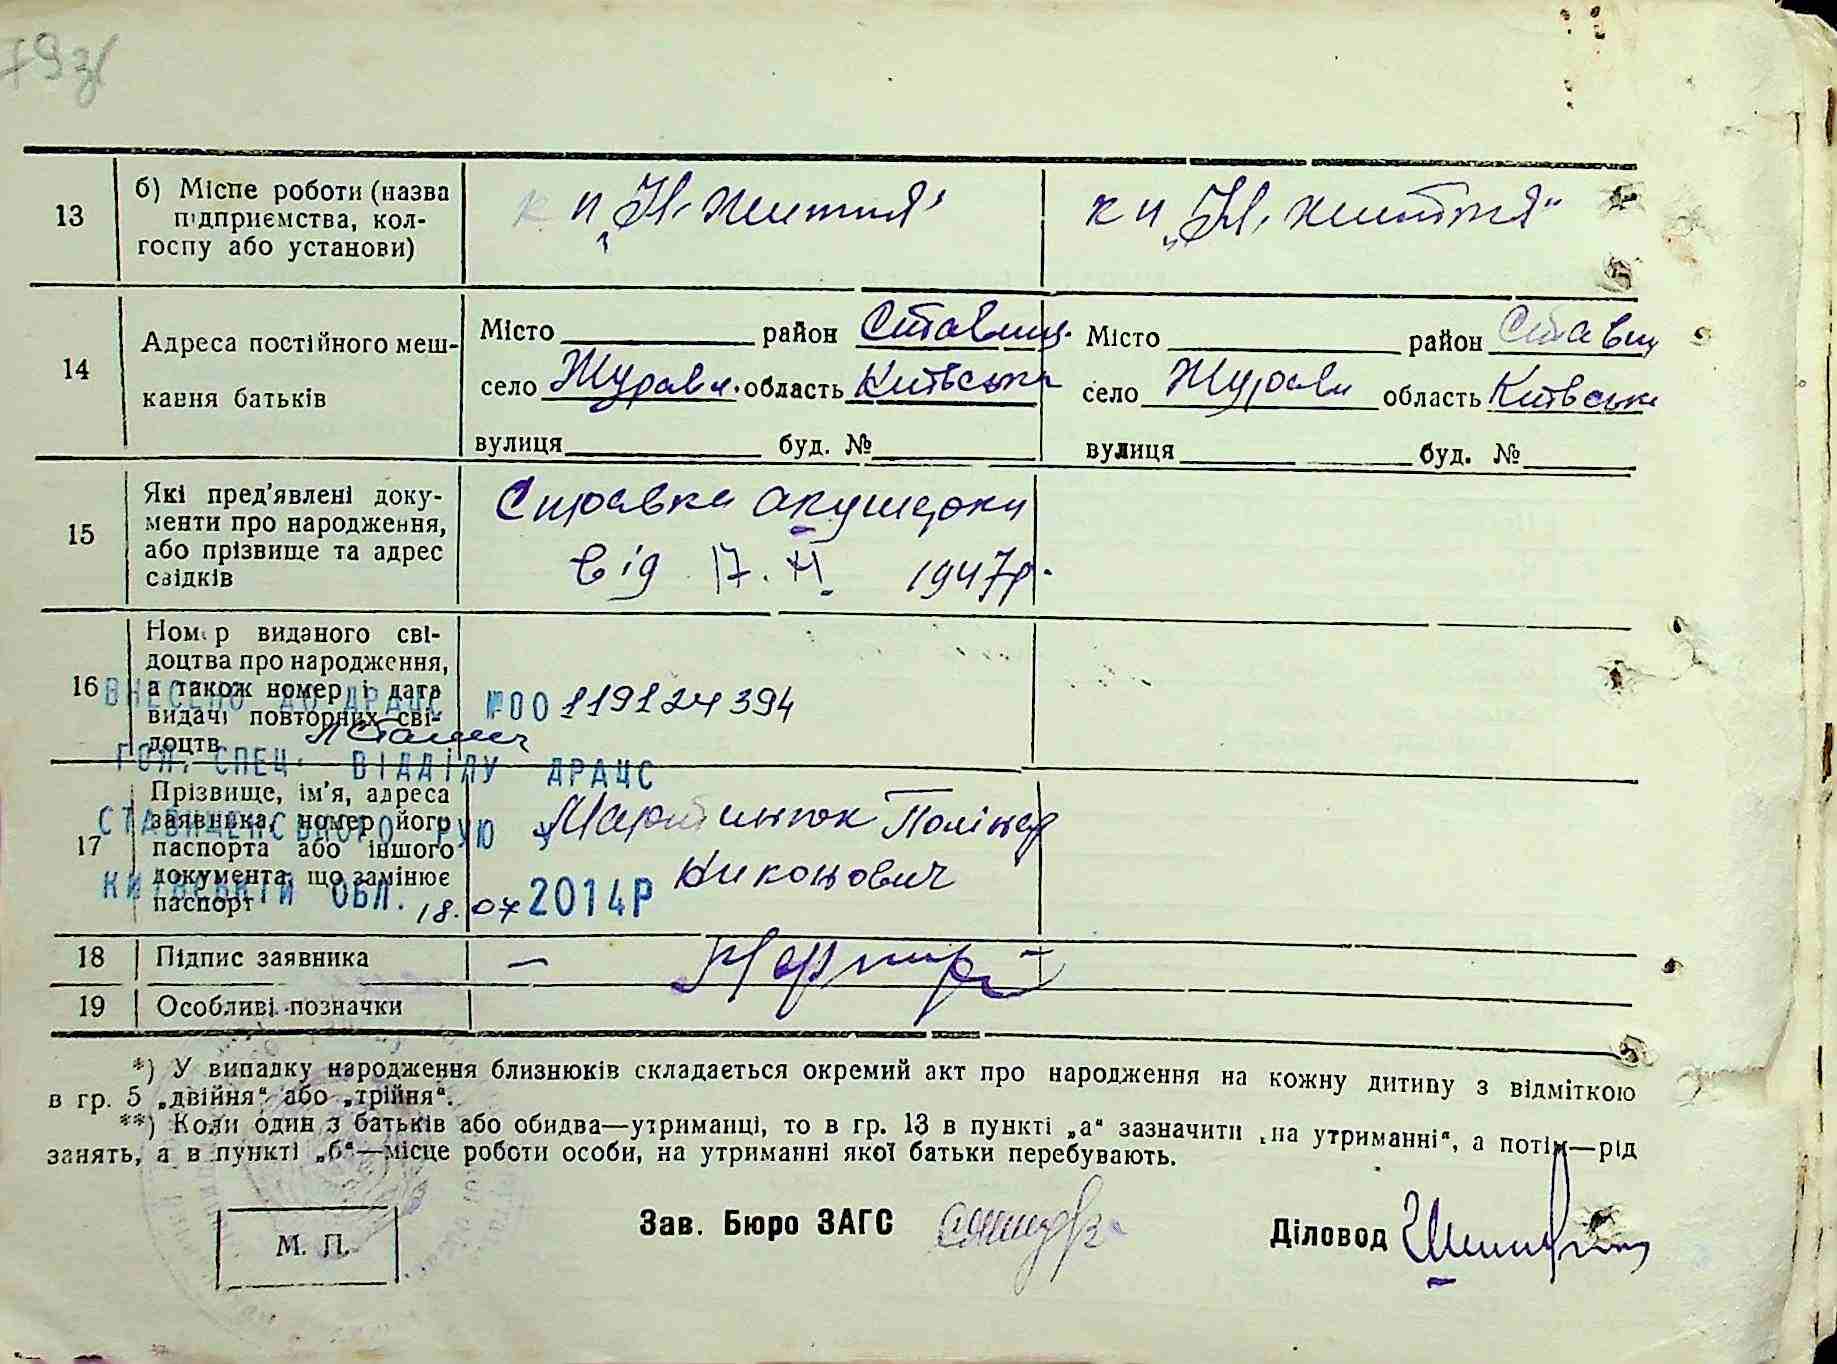 79 зв
13
б) Місце роботи (назва
підприємства, кол-
госпу або установи)
к п „Н. життя"
к п „Н. життя"
14
Адреса постійного меш-
кання батьків
Місто район Ставищ.
село Журавл. область Київська
вулиця буд. №
Місто район Ставищ
село Журавл область Київськ
вулиця буд. №
15
Які пред'явлені доку-
менти про народження,
або прізвище та адрес
свідків
Справка акушерки
від 17. 1947р.
16
Номер виданого сві-
доцтва про народження,
а також номер і дата
видачі повторних сві-
доцтв
ВНЕСЕНО ДО ДРАЦС №00119124394
ГОЛ. СПЕЦ. ВІДДІЛУ ДРАЦС
СТАВИЩЕНСЬКОГО РУЮ У
КИЇВСЬКІЙ ОБЛ. 18.07 2014Р
17
Прізвище, ім'я, адреса
заявника, номер його
паспорта або іншого
документа, що замінює
паспорт
Мартинюк Полікар
Никонович
18
Підпис заявника
—
19
Особливі позначки
*) У випадку народження близнюків складається окремий акт про народження на кожну дитину з відміткою
в гр. 5 „двійня“ або „трійня“.
**) Коли один з батьків або обидва—утриманці, то в гр. 13 в пункті „а“ зазначити „на утриманні“, а потім—рід
занять, а в пункті „б“—місце роботи особи, на утриманні якої батьки перебувають.
М. П.
Зав. Бюро ЗАГС
Діловод